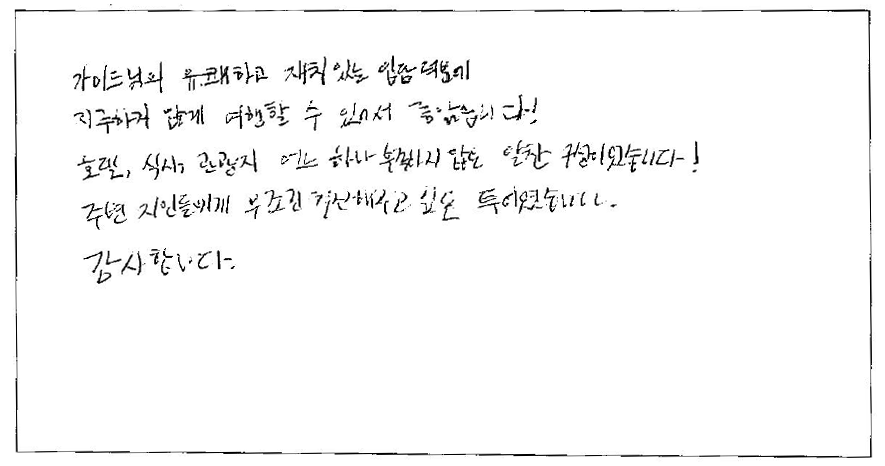 가이드님의 유쾌하고 재치있는 입담 덕분에
지루하지 않게 여행할 수 있어서 좋았습니다!
호텔, 식사, 관광지 어느 하나 부족하지 않은 알찬 구성이였습니다!
주변 지인들에게 무조건 추천해주고 싶은 투어였습니다.
감사합니다.